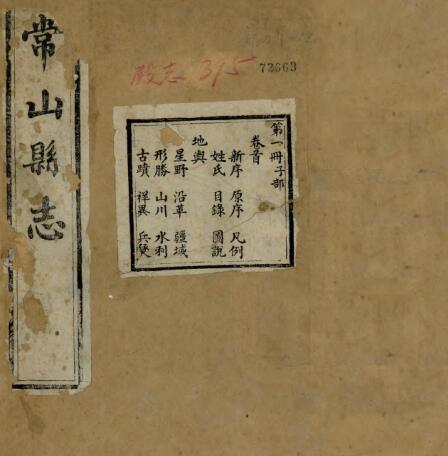 常山縣志
殷志 395
72663
第一冊子部
卷首
新序 原序 凡例
姓氏 目錄 圖說
地輿
星野 沿革 疆域
形勝 山川 水利
古蹟 祥異 兵燹